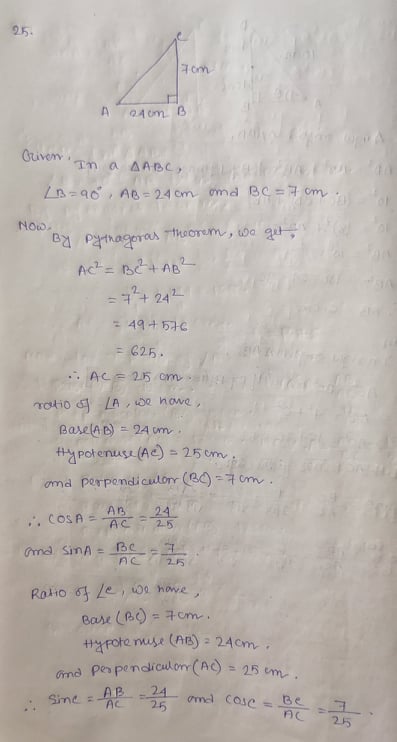 25.
C
7cm
A 24cm B
Given. In a ΔABC,
∠B=90°, AB=24cm and BC=7cm.
Now,
By Pythagoras theorem, we get:
AC² = BC² + AB²
= 7² + 24²
= 49 + 576
= 625.
∴ AC = 25 cm.
ratio of ∠A, we have,
Base(AB) = 24cm.
Hypotenuse(AC) = 25cm.
and perpendicular (BC) = 7cm.
∴ cosA = AB/AC = 24/25
and sinA = BC/AC = 7/25.
Ratio of ∠C, we have,
Base (BC) = 7cm.
Hypotenuse (AB) = 24cm.
and perpendicular (AC) = 25 cm.
∴ sinC = AB/AC = 24/25 and cosC = BC/AC = 7/25.